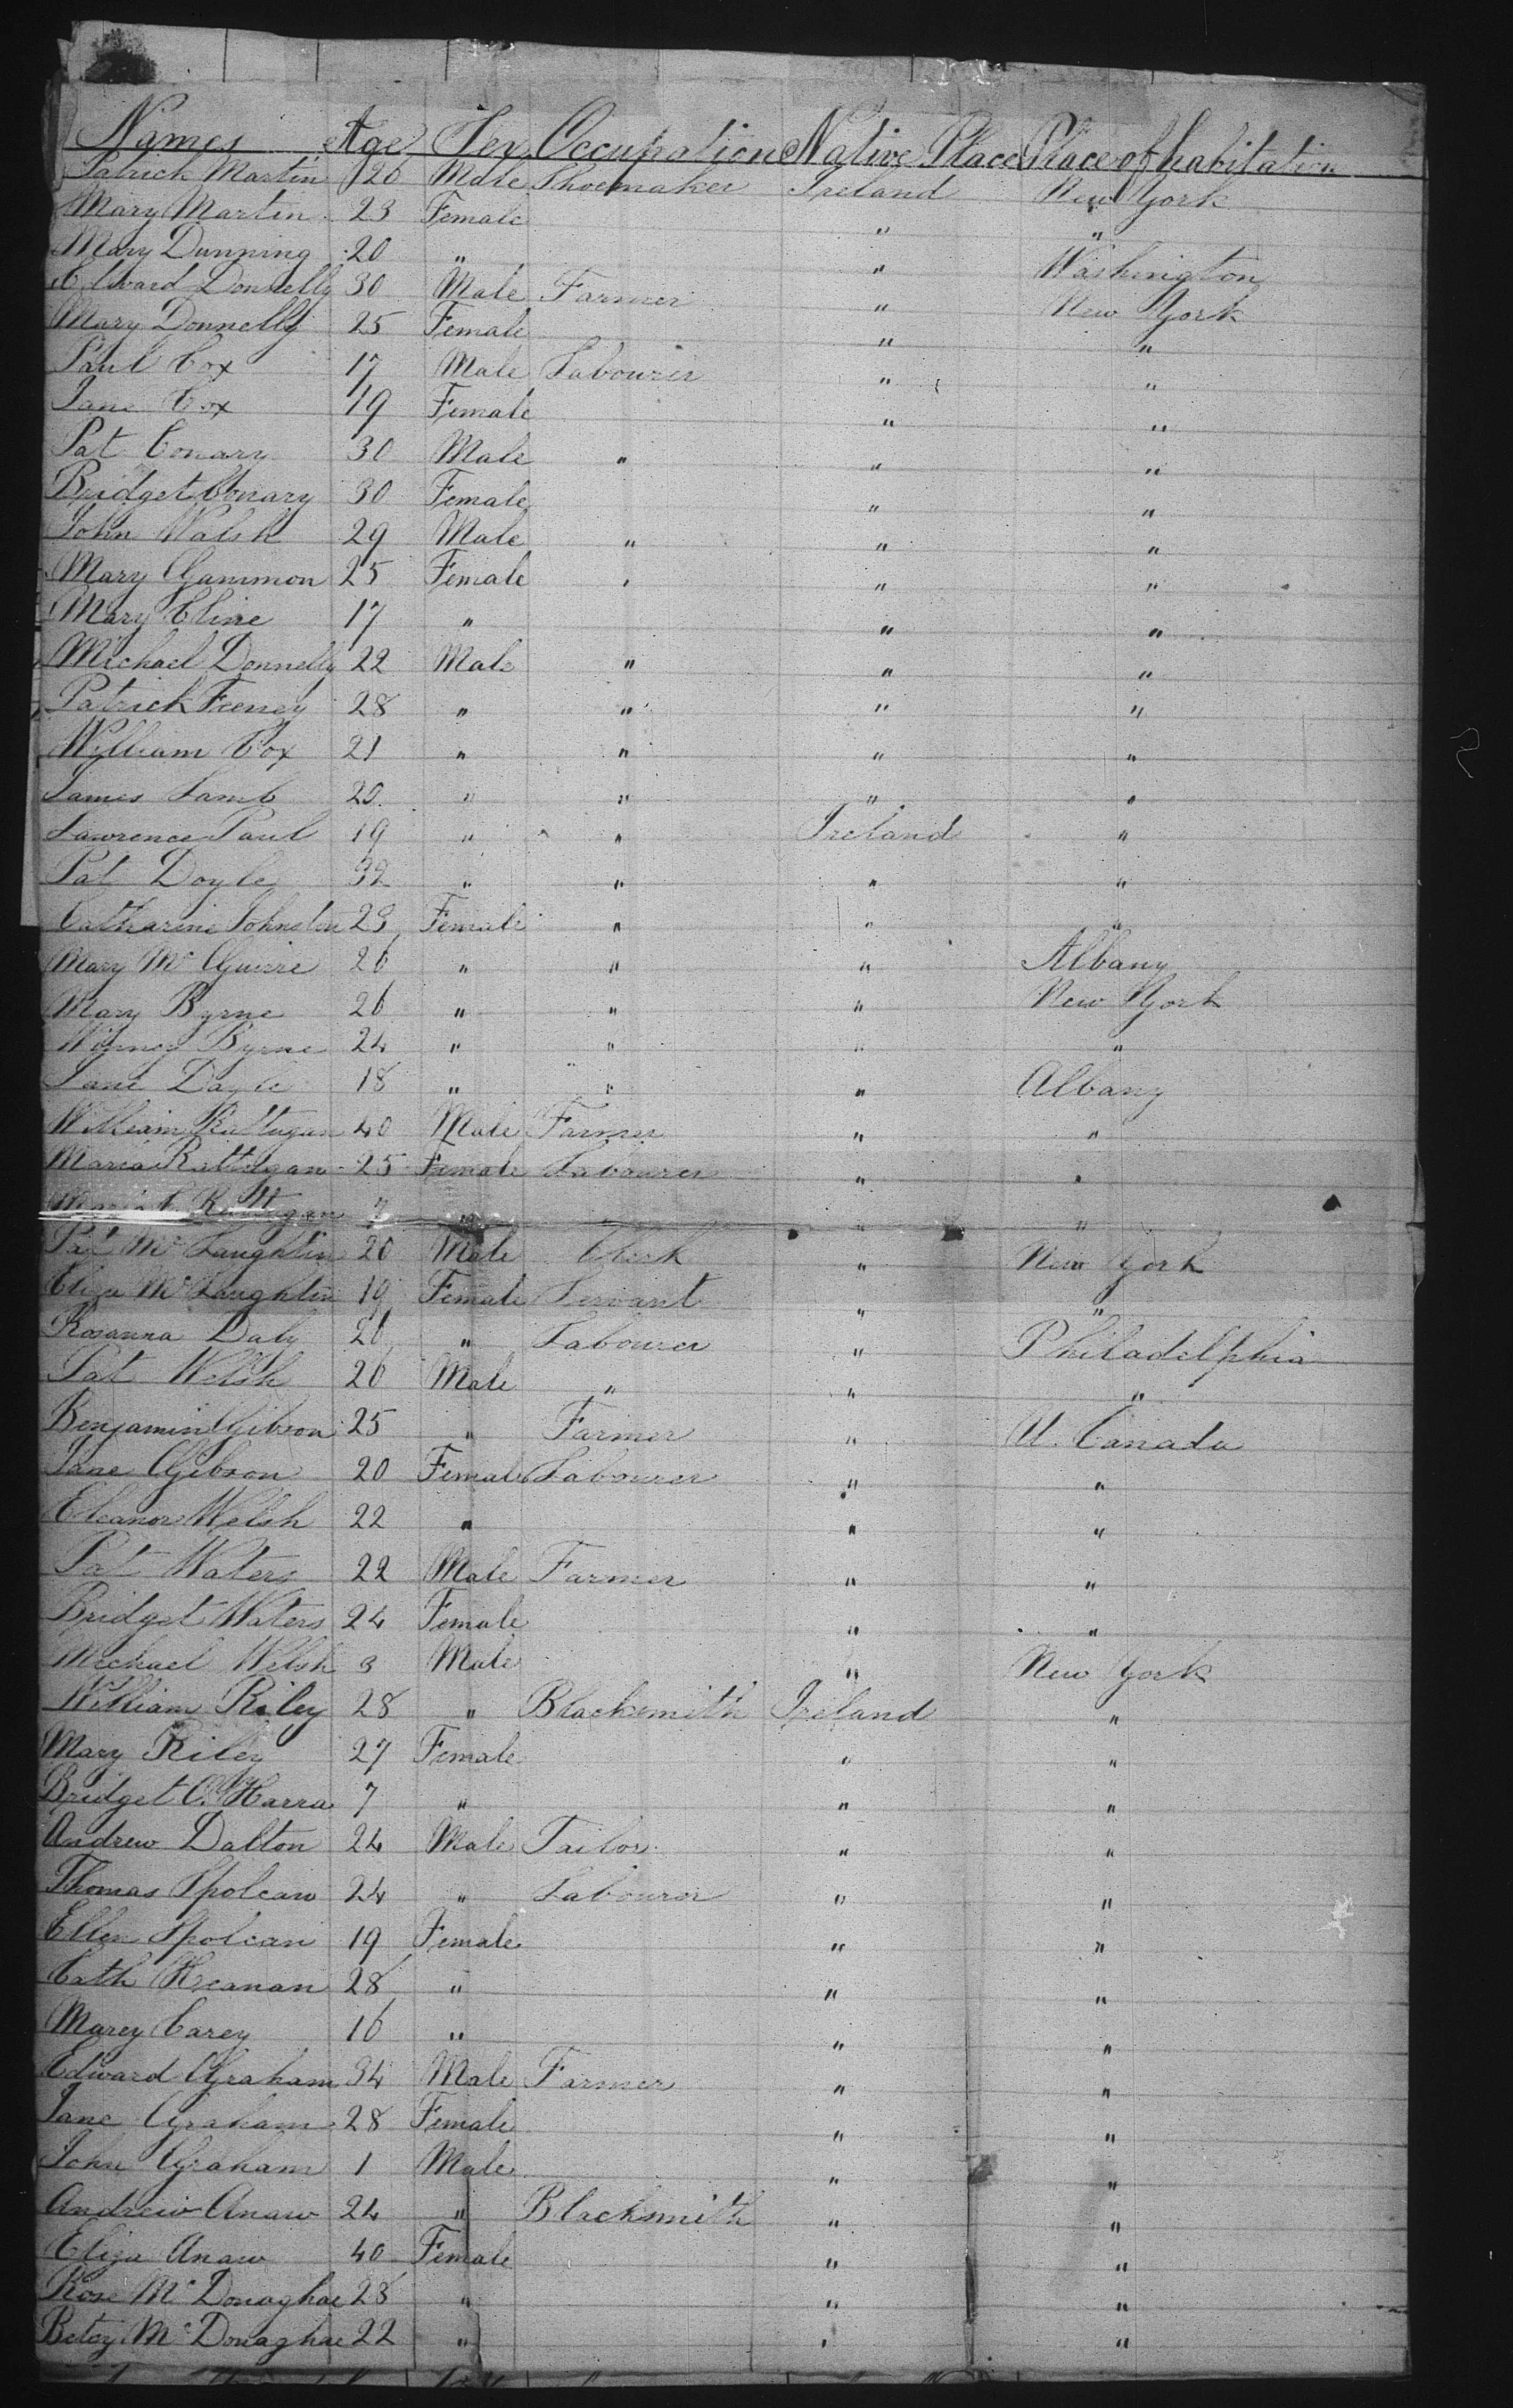 Names Age Sex Occupation Native Place Place of habitation
Patrick Martin 20 Male Shoemaker Ireland New York
Mary Martin 23 Female " "
Mary Dunning 20 " " Washington
Edward Donnelly 30 Male Farmer " New York
Mary Donnelly 25 Female " "
Paul Cox 17 Male Labourer " "
Jane Cox 19 Female " "
Pat Conary 30 Male " " "
Bridget Conary 30 Female " "
John Walsh 29 Male " " "
Mary Gammon 25 Female " " "
Mary Cline 17 " " "
Michael Donnelly 22 Male " " "
Patrick Feeney 28 " " " "
William Cox 21 " " " "
James Lamb 20 " " " "
Lawrence Paul 19 " " Ireland "
Pat Doyle 32 " " " "
Catharine Johnston 23 Female " " "
Mary McGuire 26 " " " Albany
Mary Byrne 26 " " " New York
Winney Byrne 24 " " " "
Jane Dayle 18 " " " Albany
William Rattigan 40 Male Farmer " "
Maria Rattigan 25 Female Labourer " "
Rattigan 7 " " "
Pat McLaughlin 20 Male Clerk " New York
Eliza McLaughlin 19 Female Servant " "
Rosanna Daly 26 " Labourer " Philadelphia
Pat Welsh 26 Male " " "
Benjamin Gibson 25 " Farmer " U. Canada
Jane Gibson 20 Female Labourer " "
Eleanor Welsh 22 " " "
Pat Waters 22 Male Farmer " "
Bridget Waters 24 Female " "
Michael Welsh 3 Male " New York
William Riley 28 " Blacksmith Ireland "
Mary Riley 27 Female " "
Bridget O'Harra 7 " " "
Andrew Dalton 24 Male Tailor " "
Thomas Spolcaw 24 " Labourer " "
Ellen Spolcaw 19 Female " "
Cath Keanan 28 " " "
Marey Carey 16 " " "
Edward Graham 34 Male Farmer " "
Jane Graham 28 Female " "
John Graham 1 Male " "
Andrew Anaw 24 " Blacksmith " "
Eliza Anaw 40 Female " "
Rose McDonaghae 28 " " "
Betey McDonaghae 22 " " "